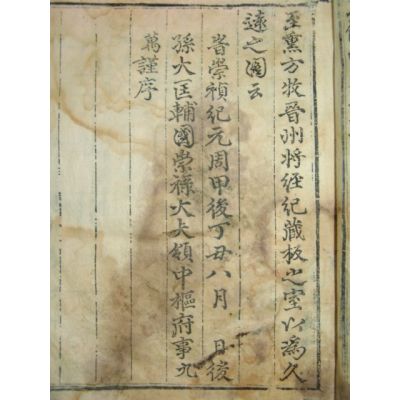 至薰方牧晉州將經紀藏板之室以爲久
遠之圖云
旹崇禎紀元周甲後丁丑八月　日後
孫大匡輔國崇祿大夫領中樞府事九
萬謹序